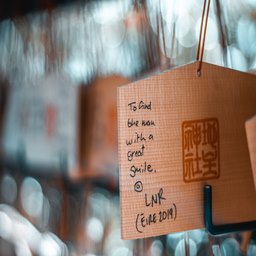 To find
the man
with a
great
smile.
LNR
(EIRE 2019)
地主
神社